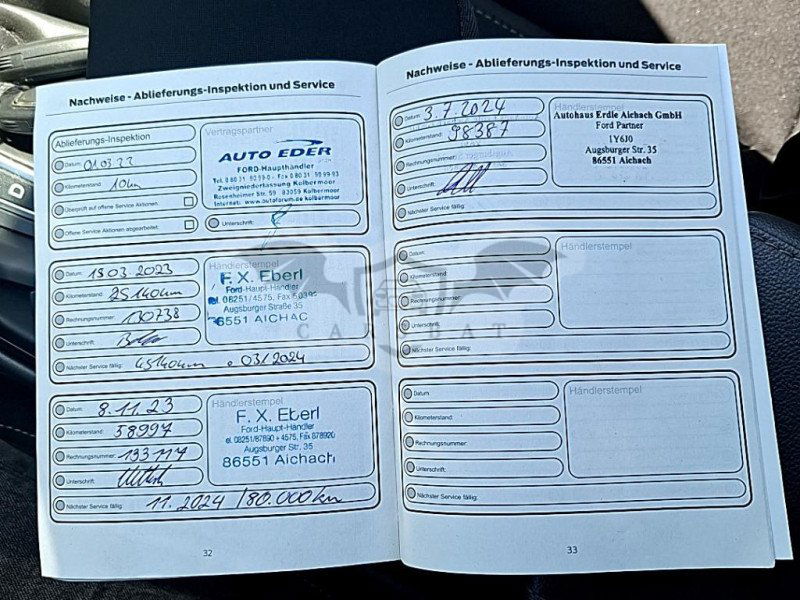 Nachweise - Ablieferungs-Inspektion und Service
Ablieferungs-Inspektion
Datum: 01.03.22
Kilometerstand: 10km
Überprüft auf offene Service Aktionen.
Offene Service Aktionen abgearbeitet:
Vertragspartner
AUTO EDER
FORD-Haupthändler
Zweigniederlassung Kolbermoor
Rosenheimer Str. 59 83059 Kolbermoor
Internet: www.autoforum.de kolbermoor
Unterschrift:
Datum: 18.03.2023
Kilometerstand: 25140km
Rechnungsnummer: 130238
Unterschrift:
Nächster Service fällig: 45140km o 03/2024
Händlerstempel
F. X. Eberl
Ford-Haupt-Händler
Tel. 08251/4575, Fax
Augsburger Straße 35
86551 AICHACH
Datum: 8.11.23
Kilometerstand: 58997
Rechnungsnummer: 133114
Unterschrift:
Nächster Service fällig: 11.2024 /80.000km
Händlerstempel
F. X. Eberl
Ford-Haupt-Händler
Tel. 08251/87890 + 4575, Fax 878920
Augsburger Str. 35
86551 Aichach
32
Nachweise - Ablieferungs-Inspektion und Service
Datum: 3.7.2024
Kilometerstand: 98387
Rechnungsnummer:
Unterschrift:
Nächster Service fällig:
Händlerstempel
Autohaus Erdle Aichach GmbH
Ford Partner
1Y6J0
Augsburger Str. 35
86551 Aichach
Datum:
Kilometerstand:
Rechnungsnummer:
Unterschrift:
Nächster Service fällig:
Händlerstempel
Datum:
Kilometerstand:
Rechnungsnummer:
Unterschrift:
Nächster Service fällig:
Händlerstempel
33
D